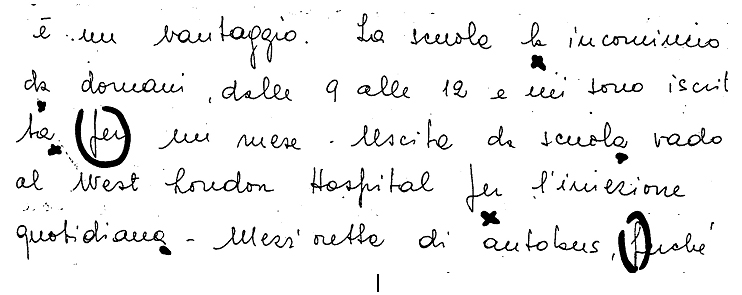 è un vantaggio. La scuola la incomincio
da domani, dalle 9 alle 12 e mi sono iscrit
ta per un mese. Uscita da scuola vado
al West London Hospital per l'iniezione
quotidiana - Mezz'oretta di autobus, perché